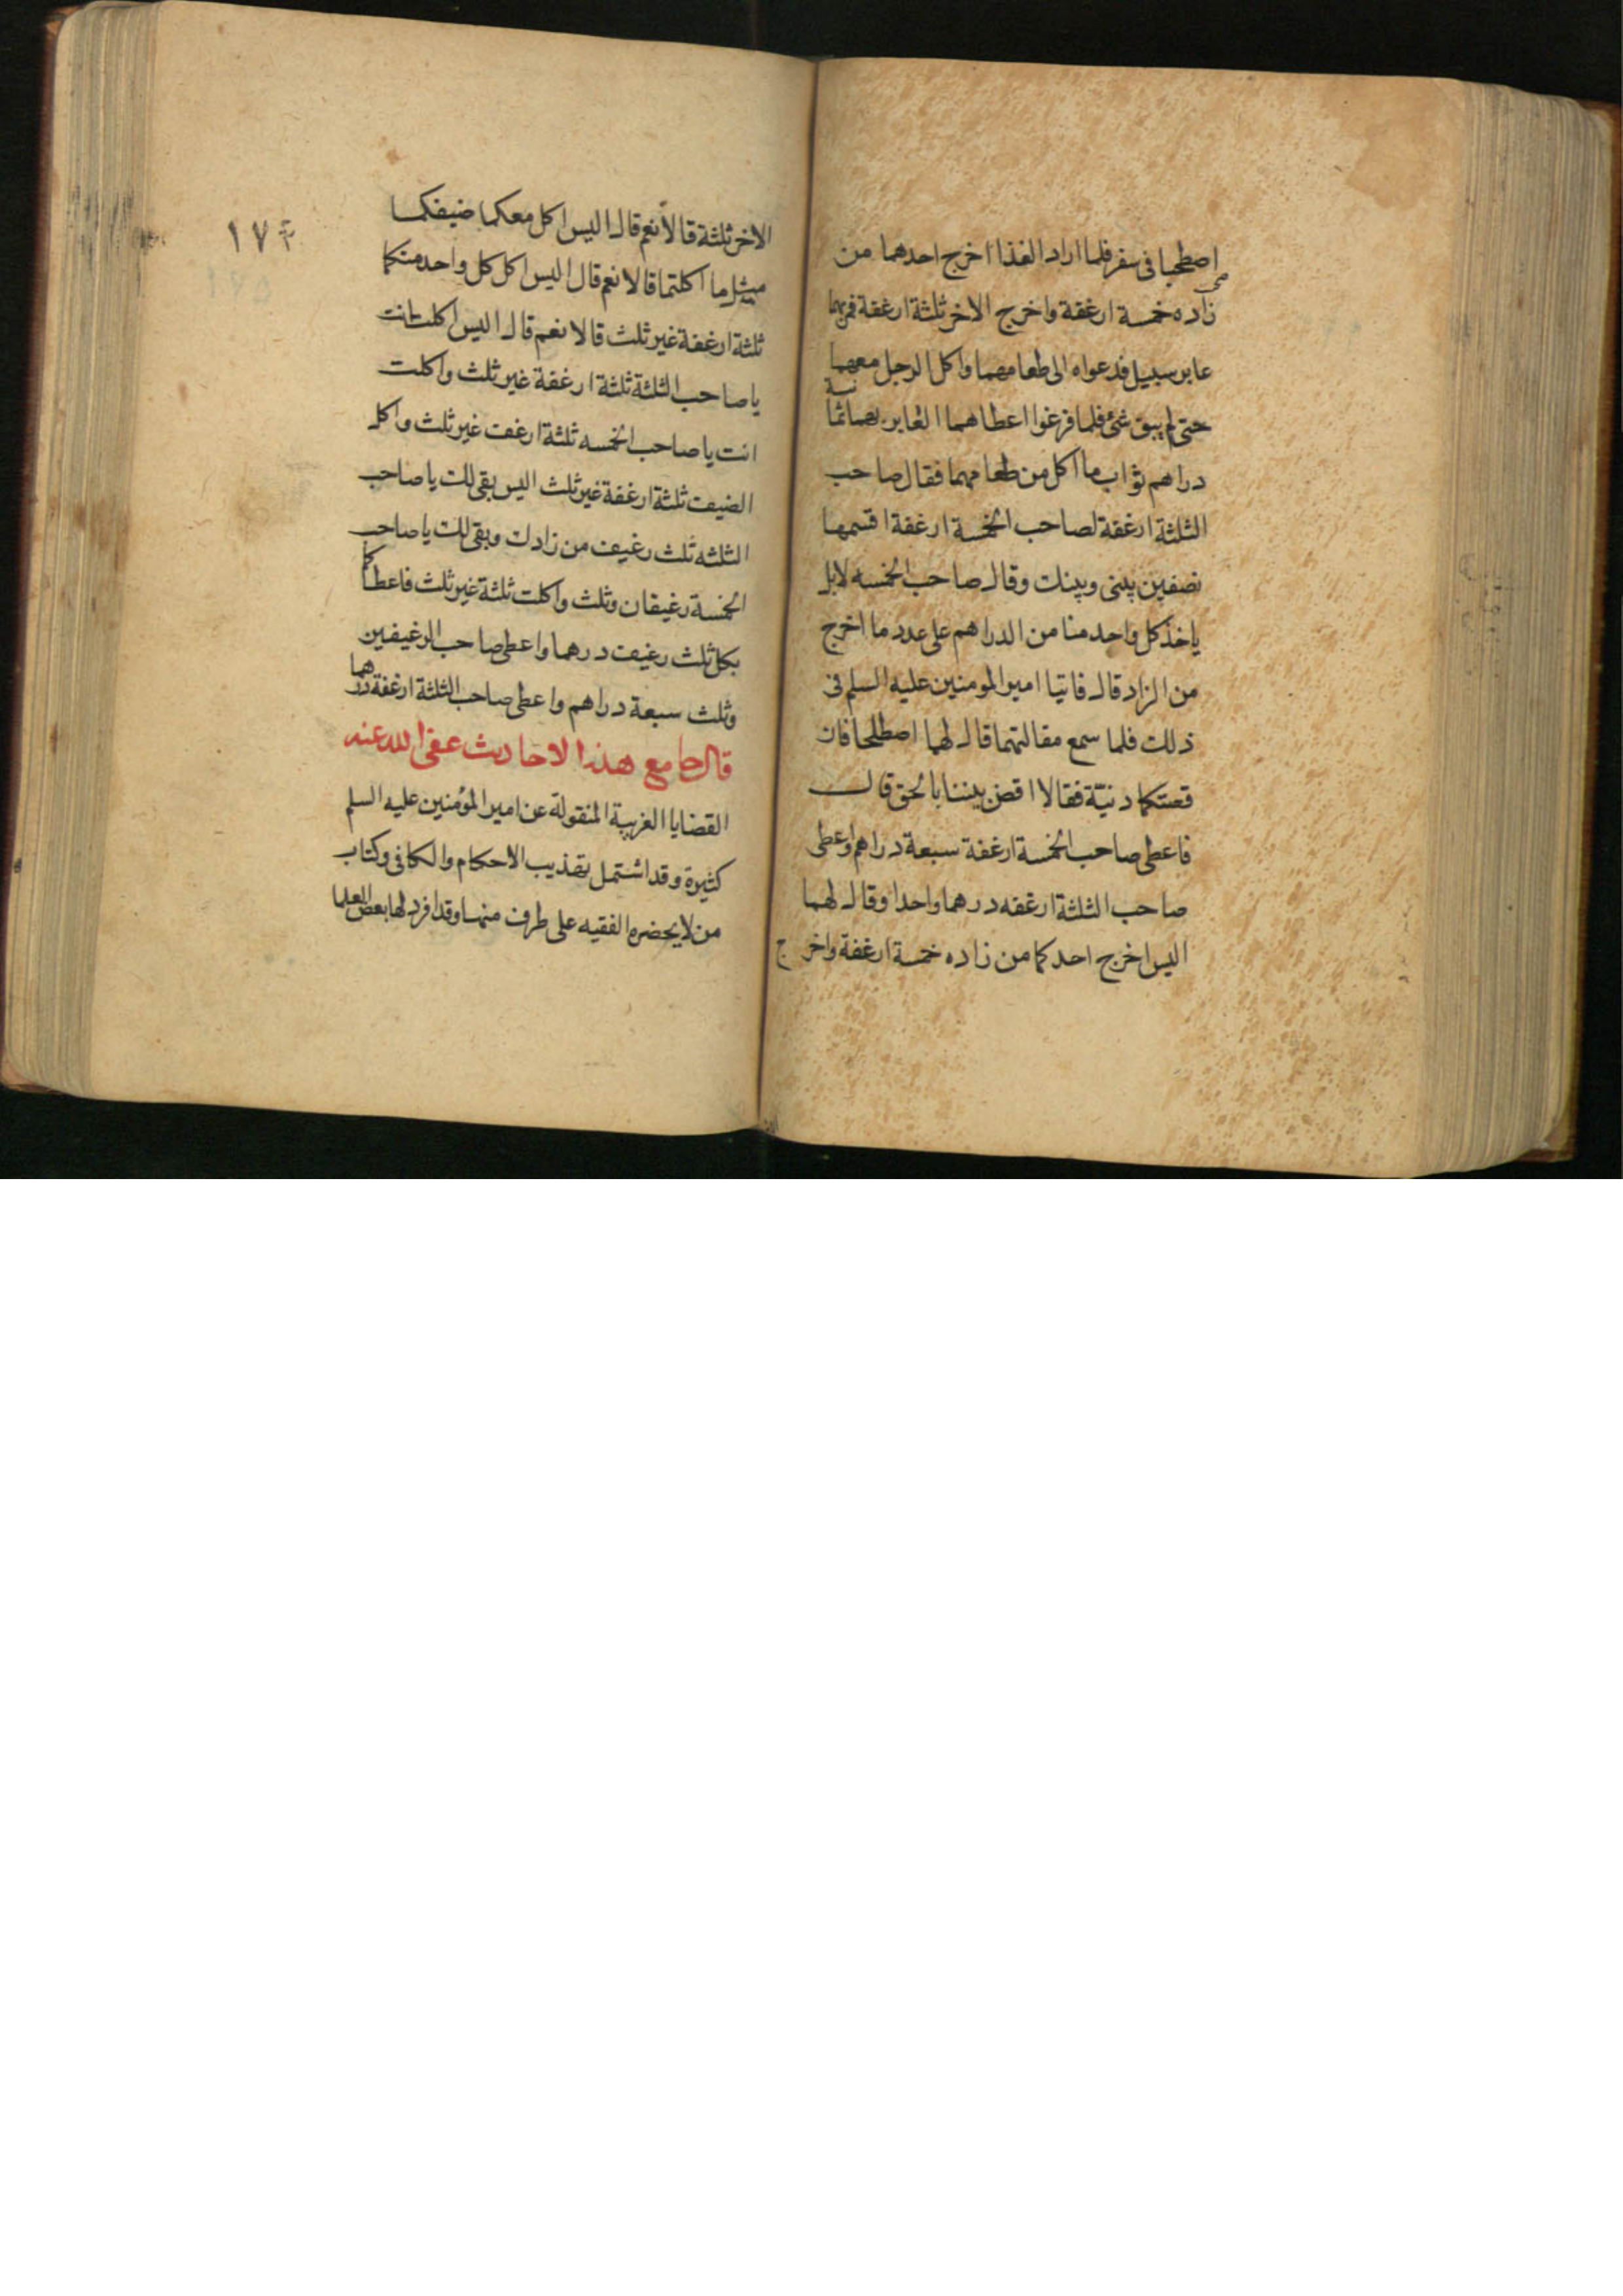 اصطحبا فى سفر فلما اراد الغذا اخرج احدهما من
زاده خمسة ارغفة واخرج الاخر ثلثة ارغفة فمر بهما
عابر سبيل فدعواه الى طعامهما واكل الرجل معهما
حتى لم يبق شئ فلما فرغوا اعطاهما العابر بهما ثمانية
دراهم ثواب ما اكل من طعامهما فقال صاحب
الثلثة ارغفة لصاحب الخمسة ارغفة اقسمها
نصفين بينى وبينك وقال صاحب الخمسه لا بل
ياخذ كل واحد منا من الدراهم على عدد ما اخرج
من الزاد قال فاتيا امير المومنين عليه السلم فى
ذلك فلما سمع مقالتهما قال لهما اصطلحا فان
قصتكما دنيّة فقالا اقض بيننا بالحق قال
فاعطى صاحب الخمسة ارغفة سبعة دراهم واعطى
صاحب الثلثة ارغفه درهما واحدا وقال لهما
اليس اخرج احدكما من زاده خمسة ارغفة واخرج
١٧٤
الاخر ثلثة قالا نعم قال اليس اكل معكما ضيفكما
مثل ما اكلتما قالا نعم قال اليس اكل كل واحد منكما
ثلثة ارغفة غير ثلث قالا نعم قال اليس اكلت انت
يا صاحب الثلثة ثلثة ارغفة غير ثلث واكلت
انت يا صاحب الخمسه ثلثة ارغفت غير ثلث واكل
الضيف ثلثة ارغفة غير ثلث اليس بقى لك يا صاحب
الثلثه ثلث رغيف من زادك وبقى لك يا صاحب
الخمسة رغيفان وثلث واكلت ثلثة غير ثلث فاعطاكما
بكل ثلث رغيف درهما واعطى صاحب الرغيفين
وثلث سبعة دراهم واعطى صاحب الثلثة ارغفة درهما
قال جامع هذا الاحاديث عفى الله عنه
القضايا الغريبة المنقولة عن امير المؤمنين عليه السلم
كثيرة وقد اشتمل تهذيب الاحكام والكافى وكتاب
من لا يحضره الفقيه على طرف منها وقد افرد لها بعض العلما